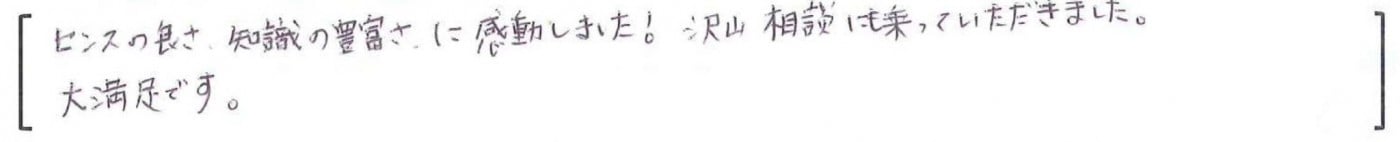 センスの良さ、知識の豊富さ、に感動しました！沢山相談にも乗っていただきました。
大満足です。